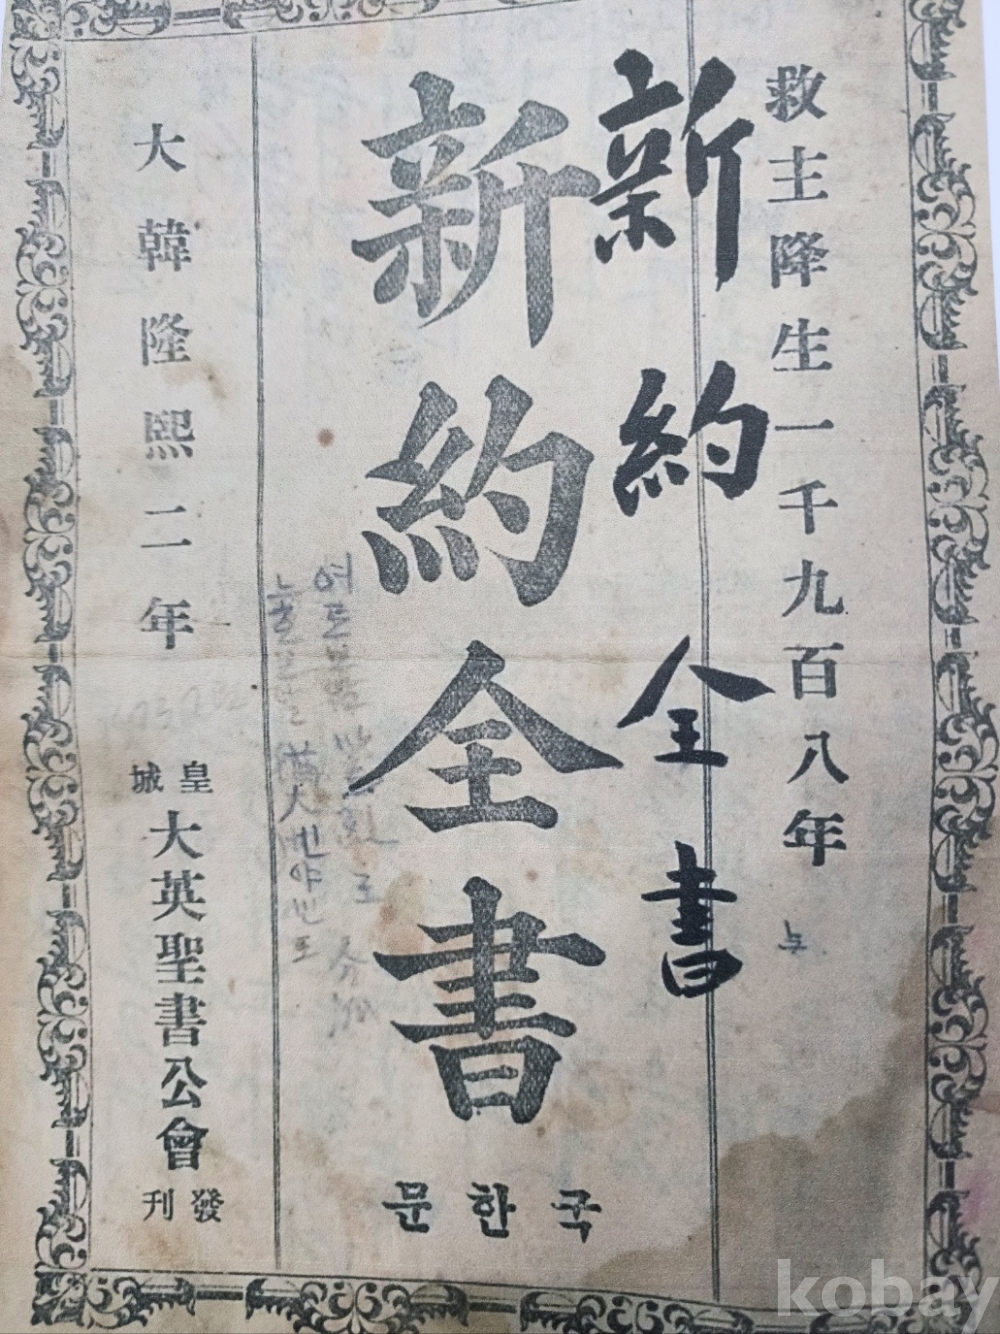 救主降生一千九百八年
新約全書
新約全書
국한문
大韓隆熙二年
皇城
大英聖書公會
發刊
kobay